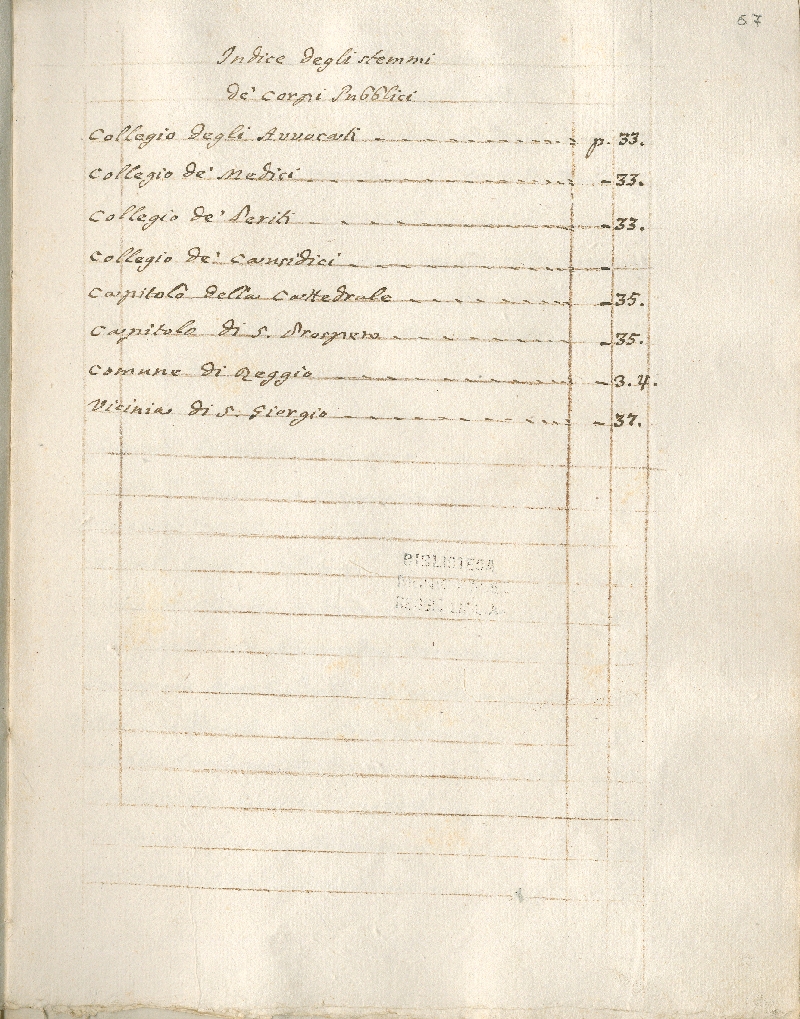 57
Indice degli stemmi
de' Corpi Pubblici
Collegio degli Avvocati - - - - - - - - - - p. 33.
Collegio de' Medici - - - - - - - - - - - 33.
Collegio de' Periti - - - - - - - - - - - 33.
Collegio de' Causidici - - - - - - - - - - -
Capitolo della Cattedrale - - - - - - - - - 35.
Capitolo di S. Prospero - - - - - - - - - 35.
Comune di Reggio - - - - - - - - - - 3.4.
Vicinia di S. Giorgio - - - - - - - - - - 37.
BIBLIOTECA